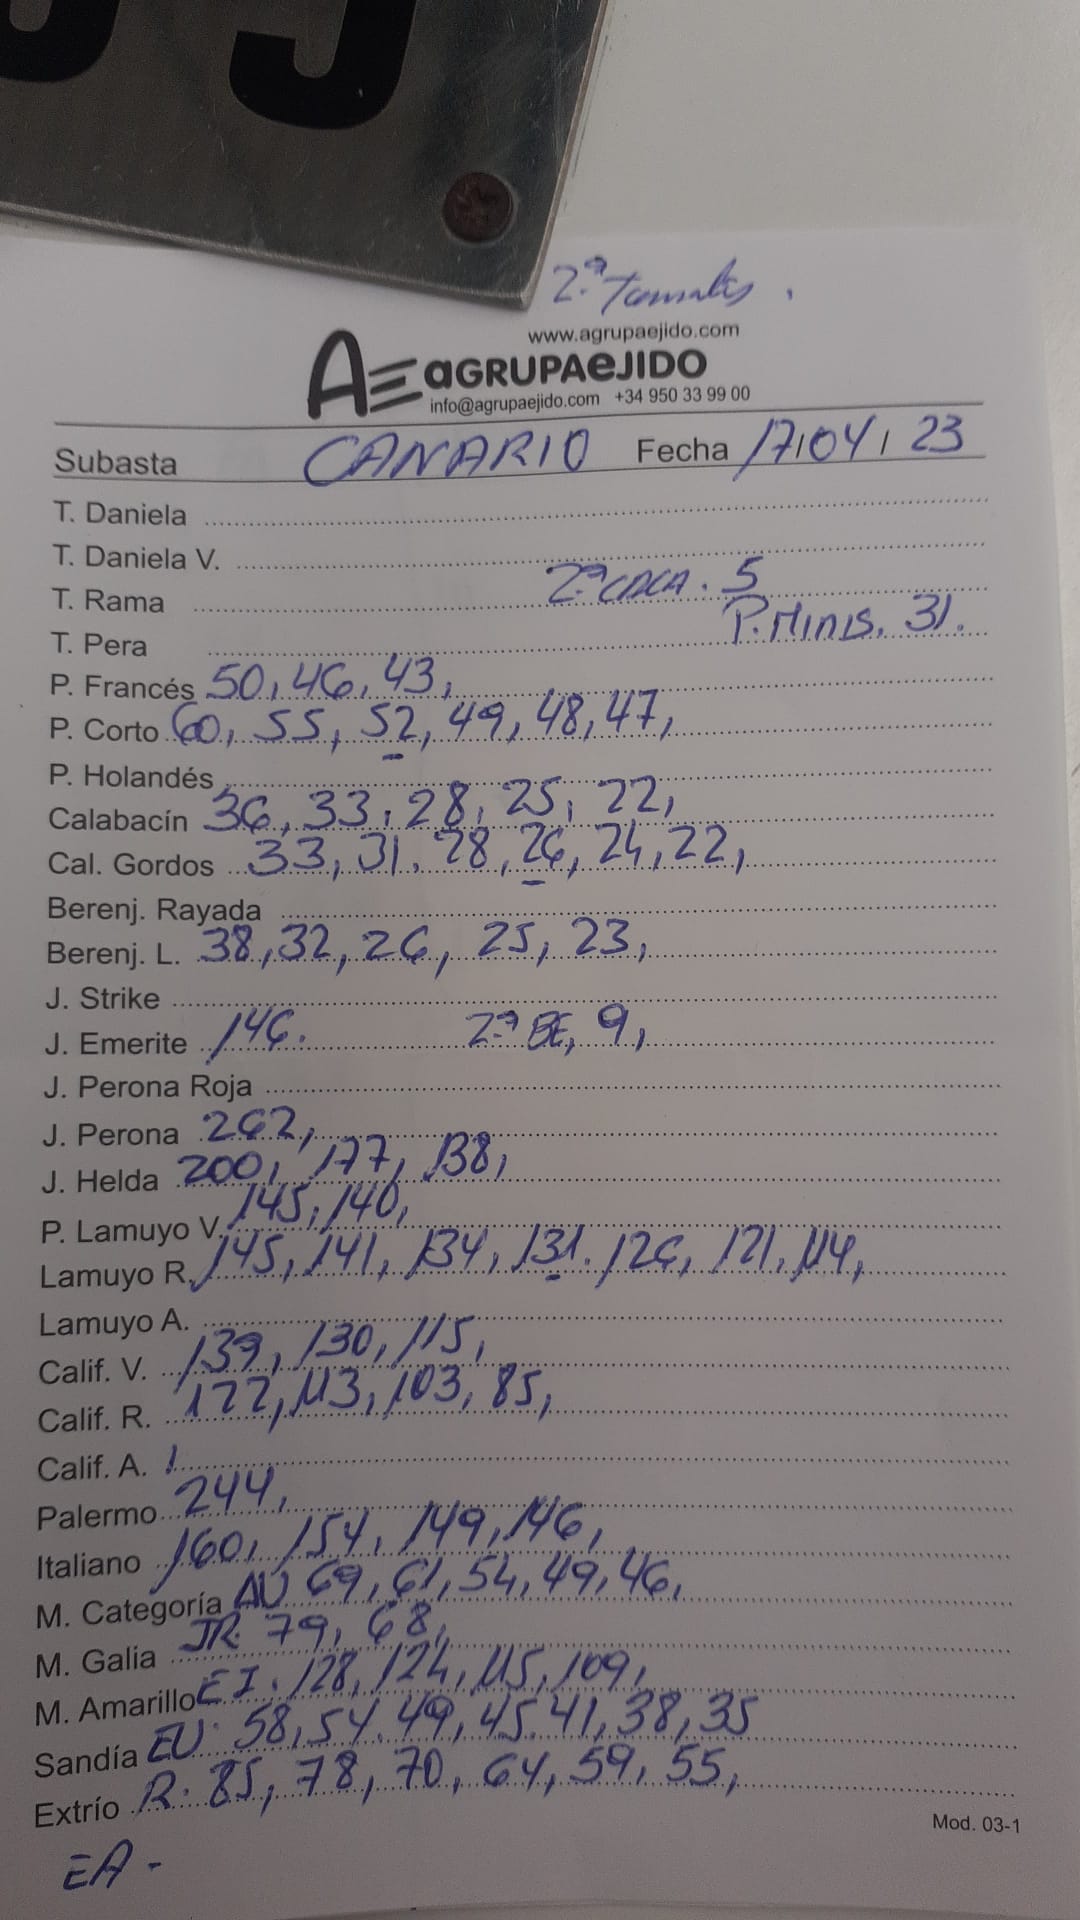 2.ª Tomates.
www.agrupaejido.com
AE aGRUPAeJIDO
info@agrupaejido.com +34 950 33 99 00
Subasta CANARIO Fecha 17/04/23
T. Daniela
T. Daniela V.
T. Rama 2ª CDCA. 5
T. Pera P. MINIS. 31.
P. Francés 50, 46, 43,
P. Corto 60, 55, 52, 49, 48, 47,
P. Holandés
Calabacín 36, 33, 28, 25, 22,
Cal. Gordos 33, 31, 28, 26, 24, 22,
Berenj. Rayada
Berenj. L. 38, 32, 26, 25, 23,
J. Strike
J. Emerite 146. 2.ª BE, 9,
J. Perona Roja
J. Perona 262,
J. Helda 200, 177, 138,
P. Lamuyo V. 145, 140,
Lamuyo R. 145, 141, 134, 131. 126, 121, 114,
Lamuyo A.
Calif. V. 139, 130, 115,
Calif. R. 122, 113, 103, 85,
Calif. A.
Palermo 244,
Italiano 160, 154, 149, 146,
M. Categoría AU 69, 61, 54, 49, 46,
M. Galia JR. 79, 68,
M. Amarillo EI. 128, 124, 115, 109,
Sandía EU. 58, 54, 49, 45, 41, 38, 35
Extrío R. 85, 78, 70, 64, 59, 55,
Mod. 03-1
EA -